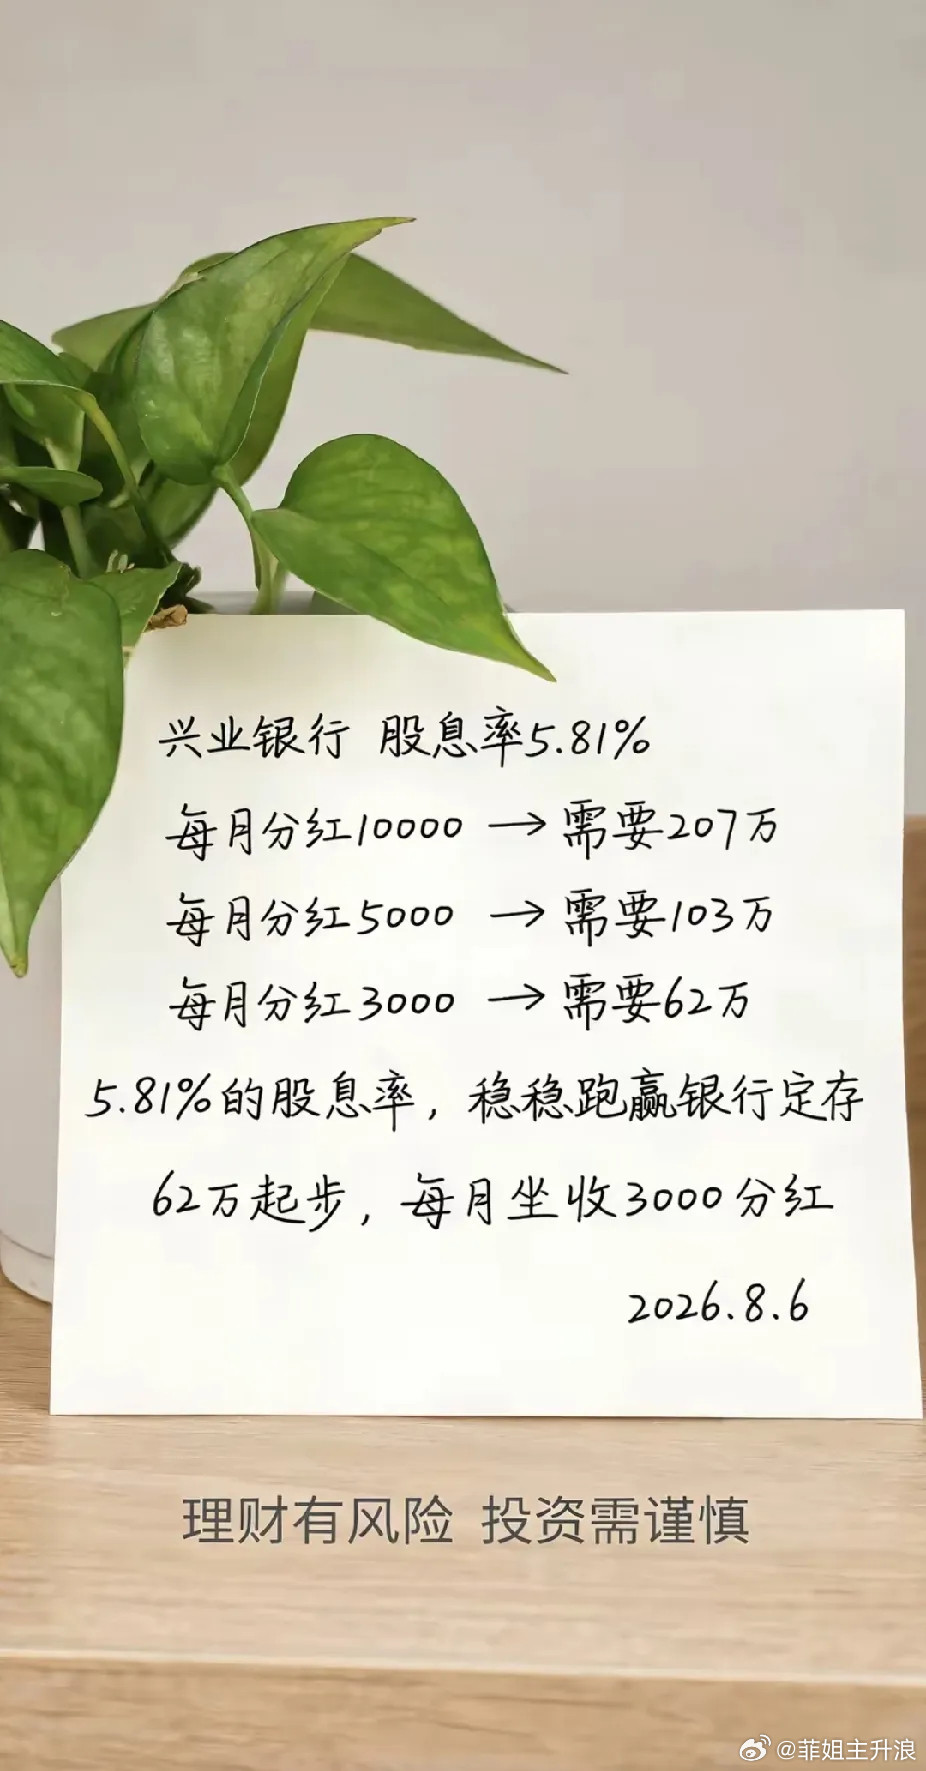 兴业银行 股息率5.81%
每月分红10000 → 需要207万
每月分红5000 → 需要103万
每月分红3000 → 需要62万
5.81%的股息率，稳稳跑赢银行定存
62万起步，每月坐收3000分红
2026.8.6
理财有风险 投资需谨慎
@菲姐主升浪